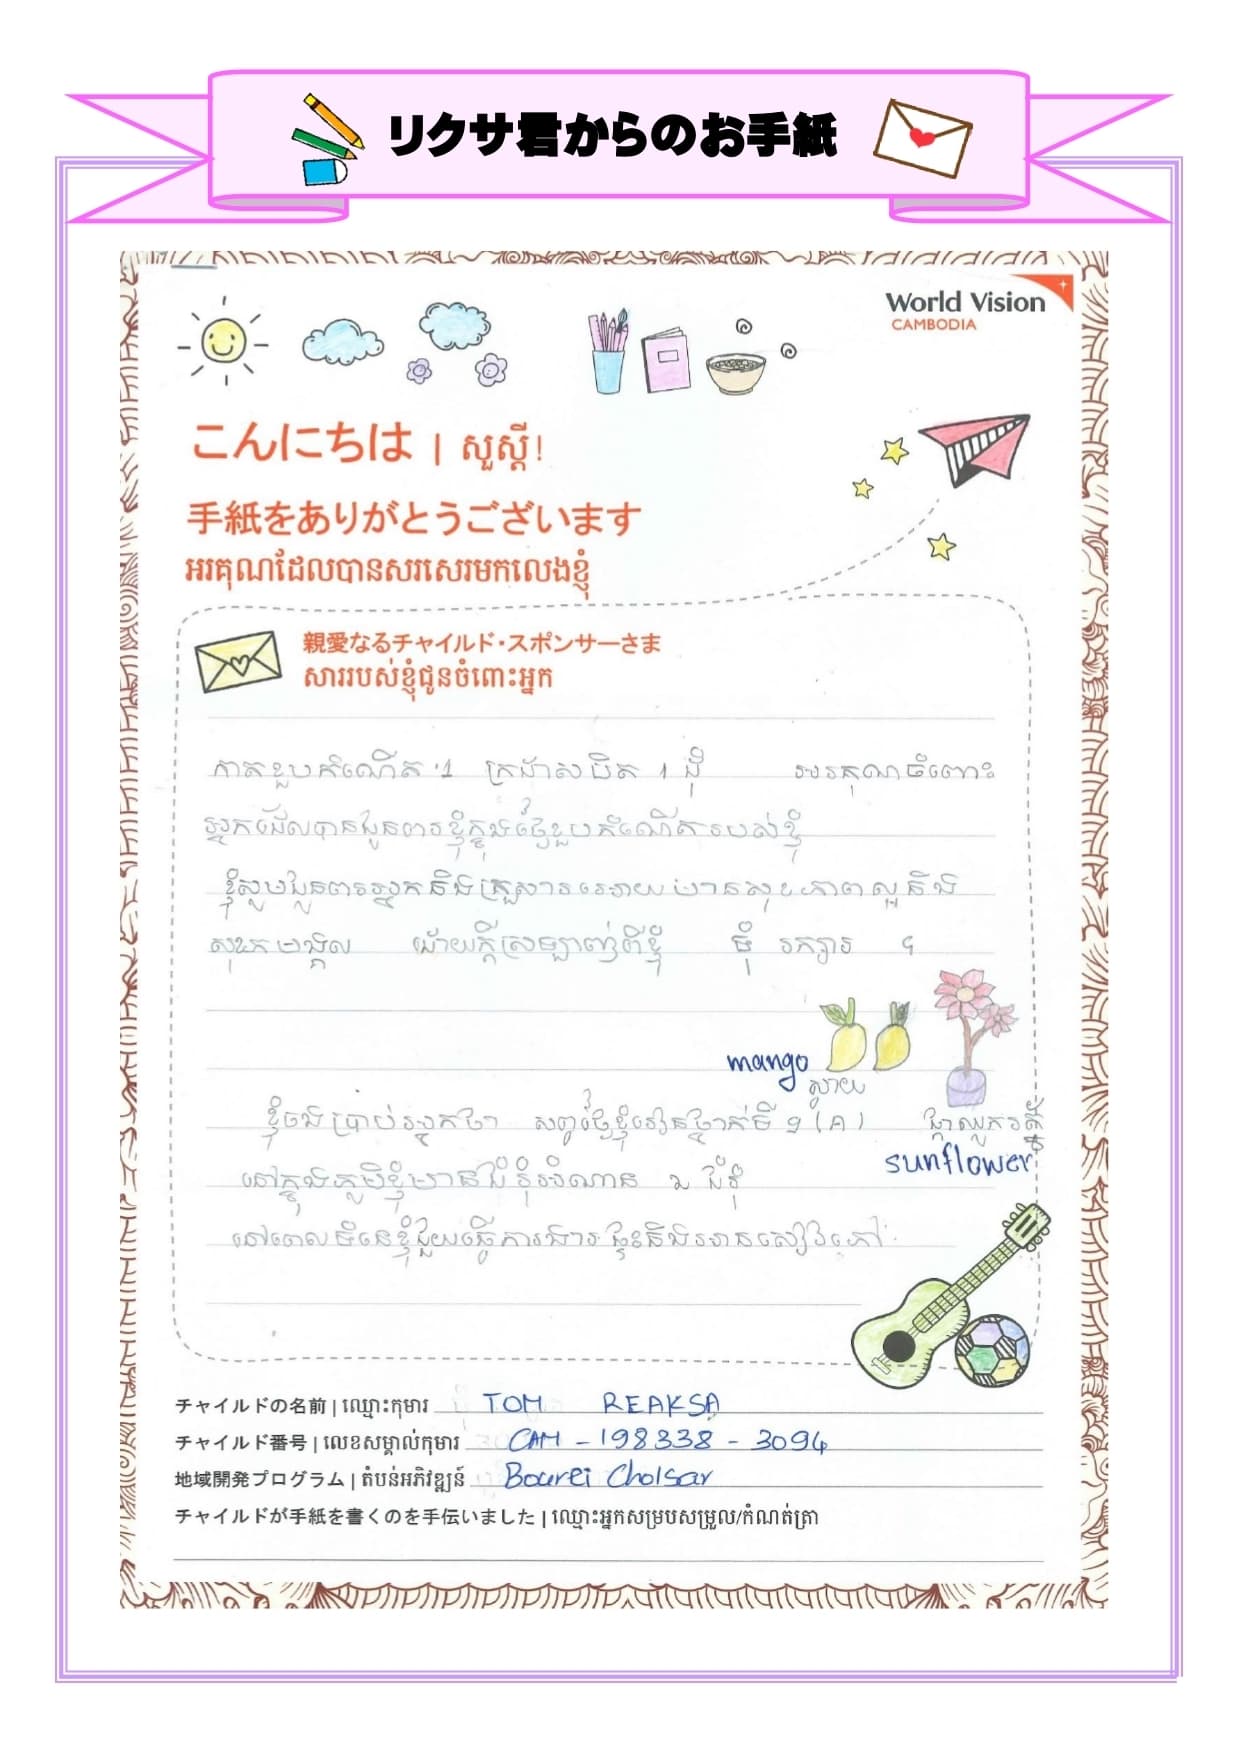 リクサ君からのお手紙
World Vision
CAMBODIA
こんにちは | សួស្តី!
手紙をありがとうございます
អរគុណដែលបានសរសេរមកលេងខ្ញុំ
親愛なるチャイルド・スポンサーさま
សាររបស់ខ្ញុំជូនចំពោះអ្នក
កាតខួបកំណើត 1 ក្រដាសបិត 1 ដុំ អរគុណចំពោះ
អ្នកដែលបានជូនពរខ្ញុំក្នុងថ្ងៃខួបកំណើតរបស់ខ្ញុំ
ខ្ញុំសូមជូនពរអ្នកនិងគ្រួសារអោយមានសុខភាពល្អនិង
សុភមង្គល ដោយក្តីស្រឡាញ់ពីខ្ញុំ ធុំ រក្សា ។
mango
ស្វាយ
ខ្ញុំចង់ប្រាប់អ្នកថា សព្វថ្ងៃខ្ញុំរៀនថ្នាក់ទី ១ (A) ផ្កាឈូករត្ន័
sunflower
នៅក្នុងភូមិខ្ញុំមានជំរុំអំណាន ជំរុំ
នៅពេលទំនេខ្ញុំជួយធ្វើការងារផ្ទះនិងអានសៀវភៅ
チャイルドの名前 | ឈ្មោះកុមារ TOM REAKSA
チャイルド番号 | លេខសម្គាល់កុមារ CAM - 198338 - 3094
地域開発プログラム | តំបន់អភិវឌ្ឍន៍ Bourei Cholsar
チャイルドが手紙を書くのを手伝いました | ឈ្មោះអ្នកសម្របសម្រួល/កំណត់ត្រា